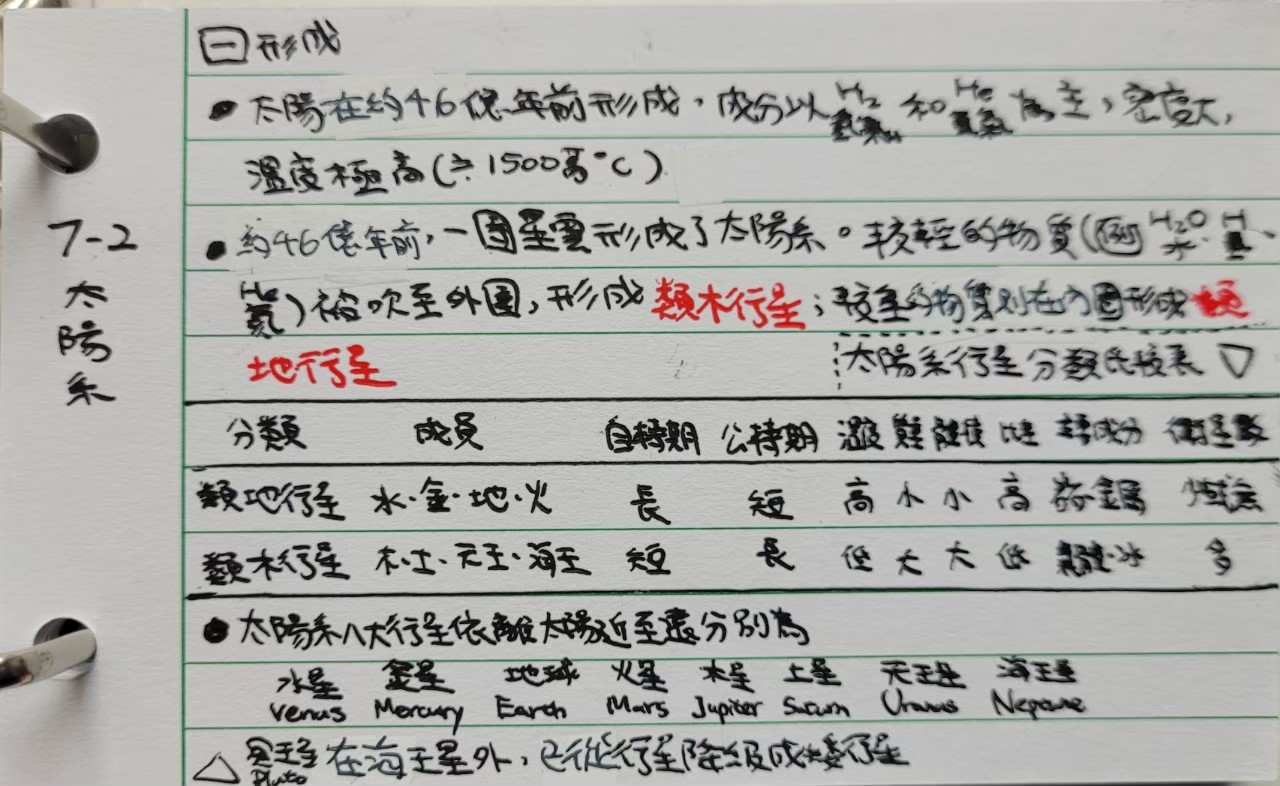 7-2
太
陽
系
一 形成
• 太陽在約46億年前形成，成分以 H₂ 氫氣 和 He 氦氣 為主，密度大，
溫度極高(≒1500萬°C)
• 約46億年前，一團星雲形成了太陽系。較輕的物質(例 H₂O 水、H 氫、
He 氦) 被吹至外圍，形成類木行星；較重的物質則在內圍形成類
地行星
太陽系行星分類 ▽
分類 成員 自轉期 公轉期 溫度 成分 衛星數
類地行星 水·金·地·火 長 短 高 小 小 高 金屬
類木行星 木·土·天王·海王 短 長 低 大 大 低 冰 多
• 太陽系八大行星依離太陽近至遠分別為
水星 金星 地球 火星 木星 土星 天王星 海王星
Venus Mercury Earth Mars Jupiter Saturn Uranus Neptune
△ 冥王星 Pluto 在海王星外，已從行星降級成矮行星